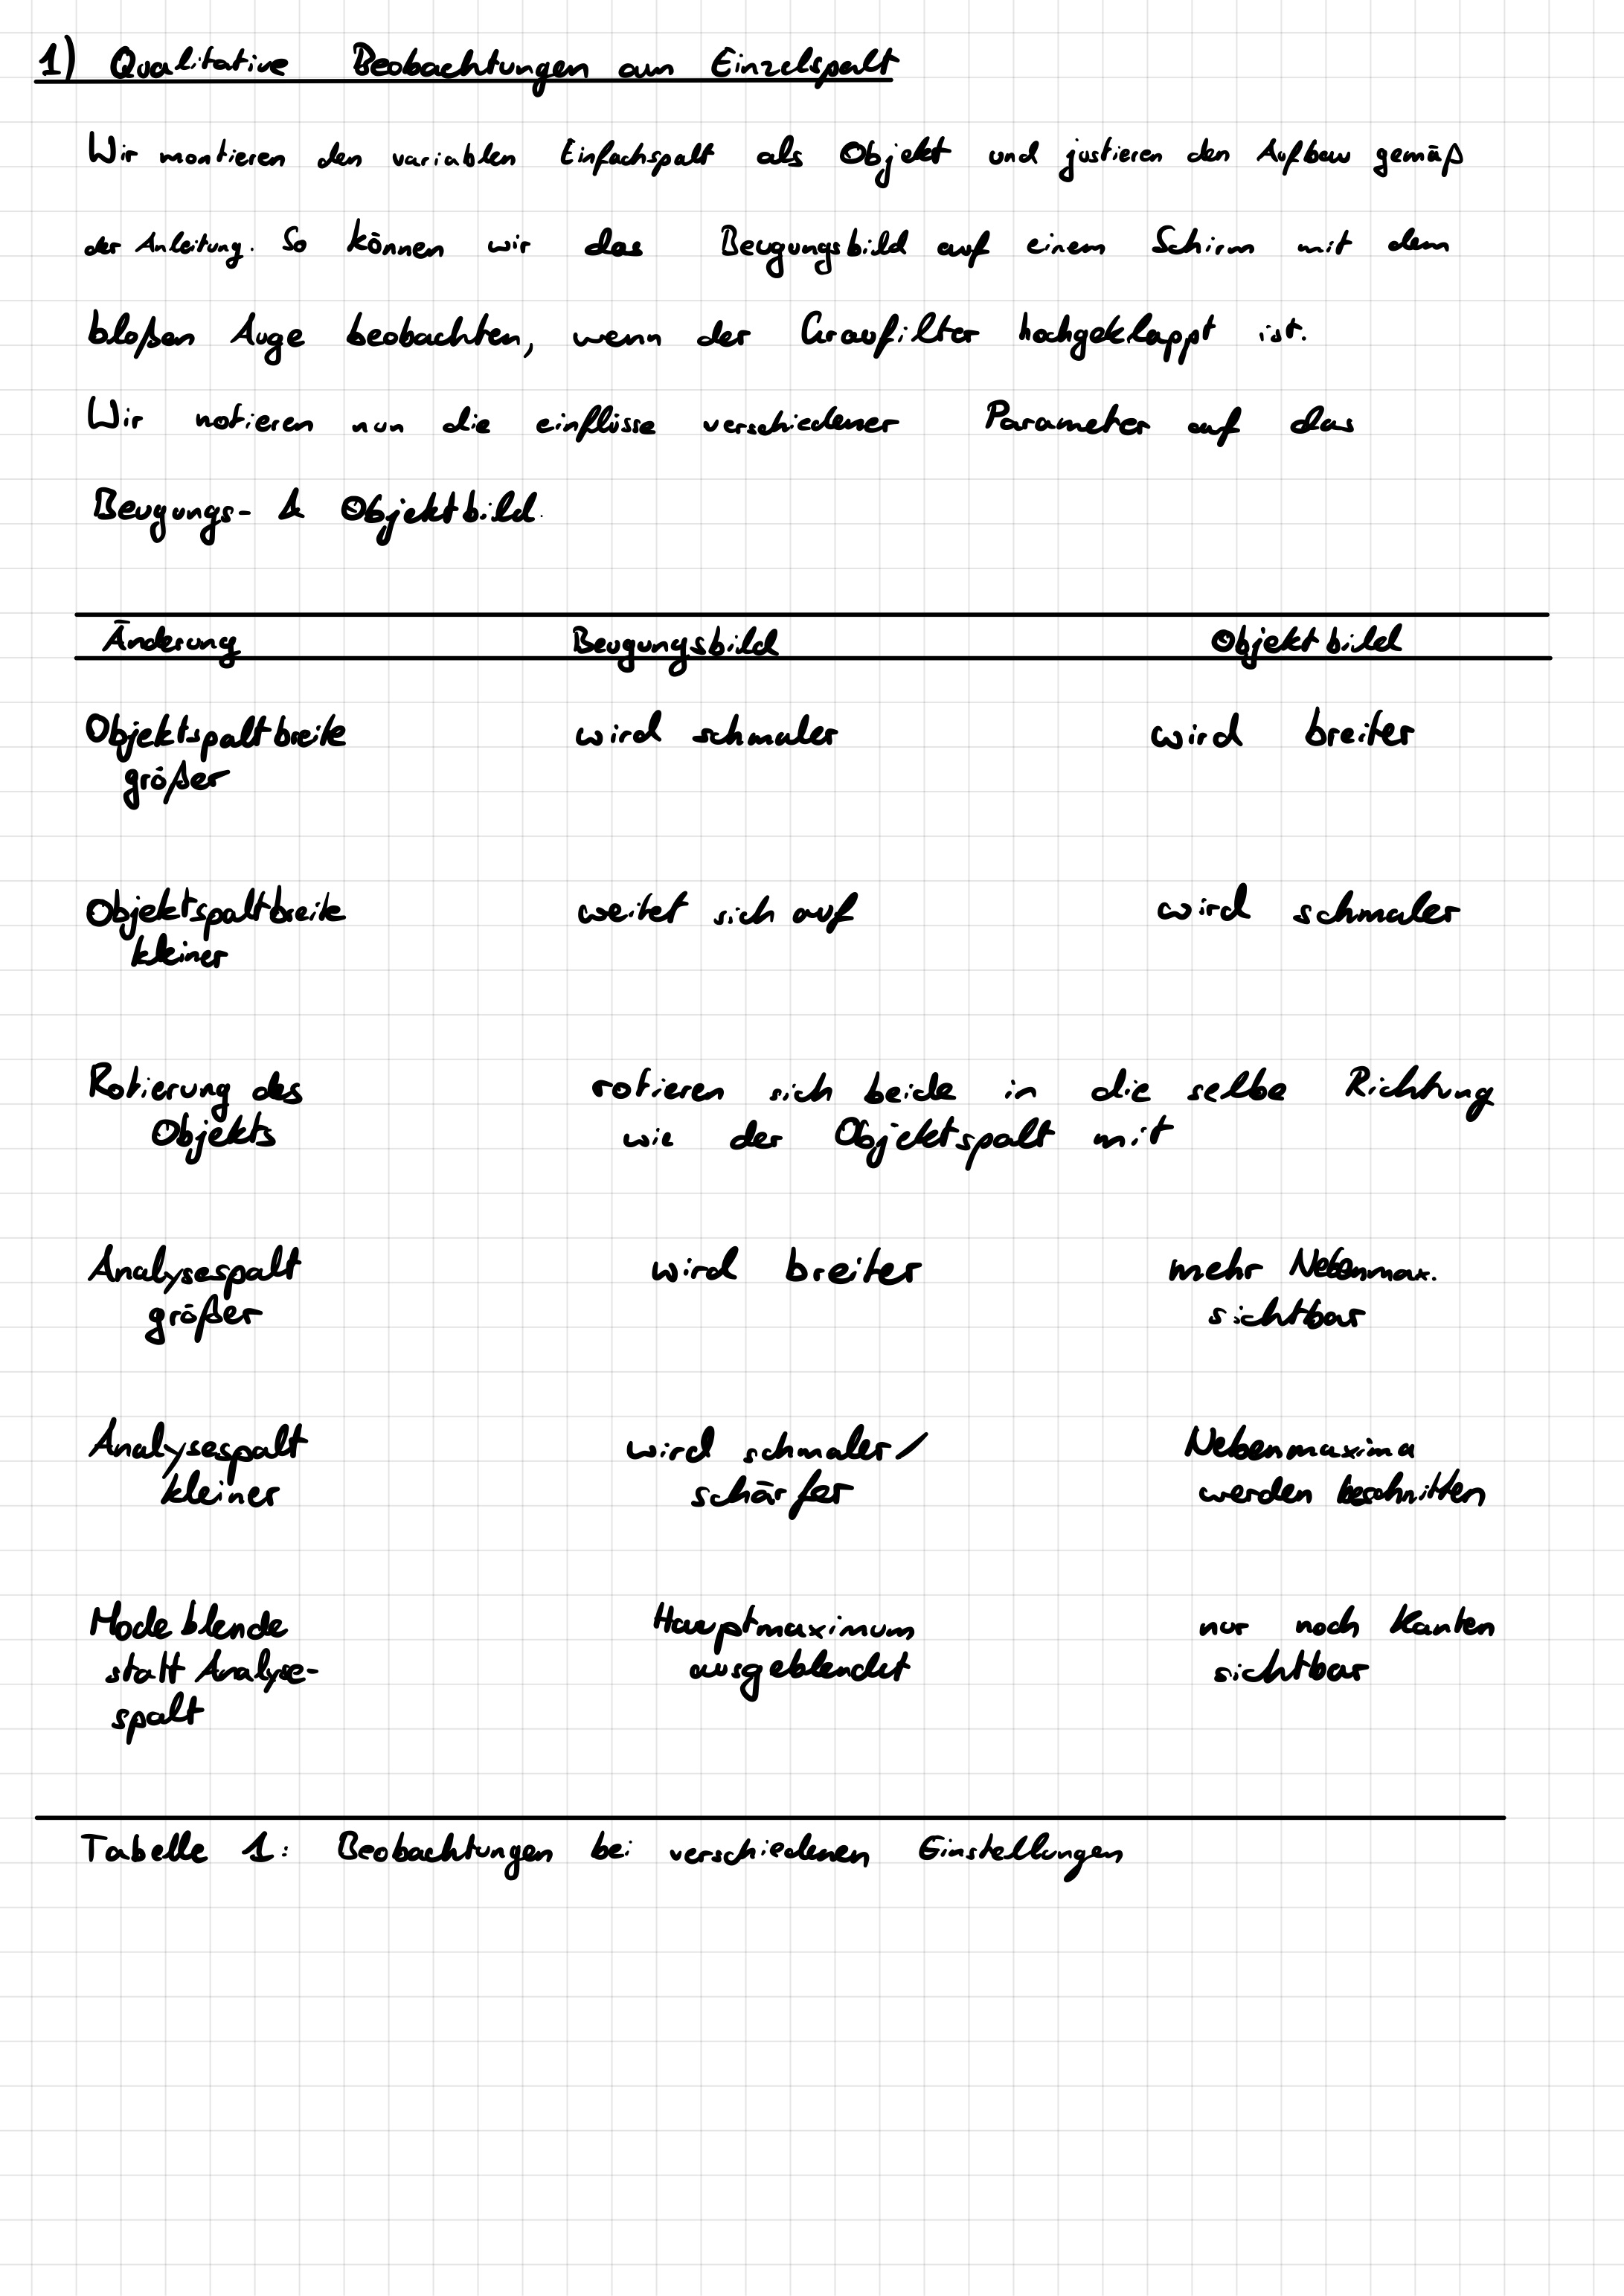 1) Qualitative Beobachtungen am Einzelspalt
Wir montieren den variablen Einfachspalt als Objekt und justieren den Aufbau gemäß
der Anleitung. So können wir das Beugungsbild auf einem Schirm mit dem
bloßen Auge beobachten, wenn der Graufilter hochgeklappt ist.
Wir notieren nun die einflüsse verschiedener Parameter auf das
Beugungs- & Objektbild.
Änderung Beugungsbild Objektbild
Objektspaltbreite wird schmaler wird breiter
größer
Objektspaltbreite weitet sich auf wird schmaler
kleiner
Rotierung des rotieren sich beide in die selbe Richtung
Objekts wie der Objektspalt mit
Analysespalt wird breiter mehr Nebenmax.
größer sichtbar
Analysespalt wird schmaler/ Nebenmaxima
kleiner schärfer werden beschnitten
Modeblende Hauptmaximum nur noch Kanten
statt Analyse- ausgeblendet sichtbar
spalt
Tabelle 1: Beobachtungen bei verschiedenen Einstellungen